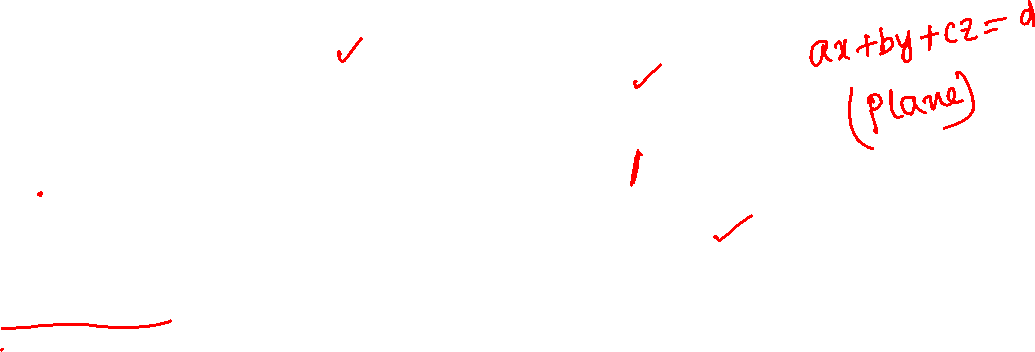 ax+by+cz=d
(Plane)